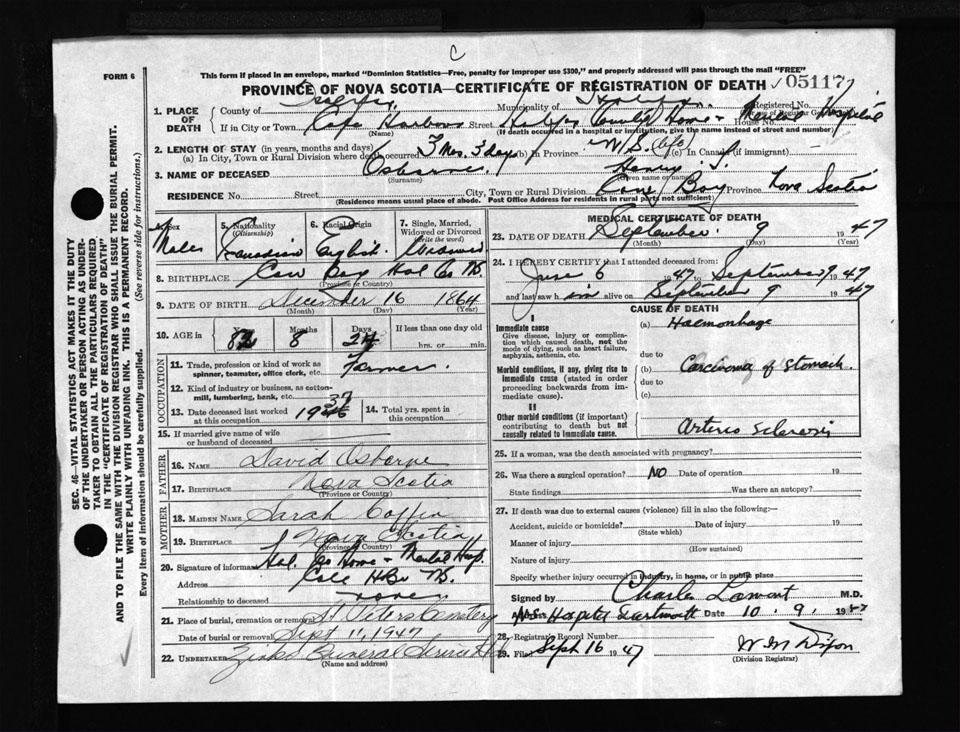 C
FORM 6
This form if placed in an envelope, marked "Dominion Statistics—Free, penalty for improper use $300," and properly addressed will pass through the mail "FREE"
PROVINCE OF NOVA SCOTIA—CERTIFICATE OF REGISTRATION OF DEATH
05117
1. PLACE OF DEATH
County of Halifax Municipality of Halifax Registered No.
If in City or Town Cole Harbour Street Halifax County Home + Mental Hospital House No.
(Name) (If death occurred in a hospital or institution, give the name instead of street and number)
2. LENGTH OF STAY (in years, months and days)
(a) In City, Town or Rural Division where death occurred 3 Mos. 3 days (b) In Province N.S. (life) (c) In Canada (if immigrant)
3. NAME OF DECEASED Osborne, Henry S.
(Surname) (Given name or names)
RESIDENCE No. Street City, Town or Rural Division Cow Bay Province Nova Scotia
(Residence means usual place of abode. Post Office Address for residents in rural parts not sufficient)
4. Sex 5. Nationality (Citizenship) 6. Racial Origin 7. Single, Married, Widowed or Divorced (Write the word)
Male Canadian English Widowed
8. BIRTHPLACE Cow Bay Hal Co NS.
(Province or Country)
9. DATE OF BIRTH December 16 1864
(Month) (Day) (Year)
10. AGE in Years Months Days If less than one day old
82 8 24 hrs. or min.
OCCUPATION
11. Trade, profession or kind of work as spinner, teamster, office clerk, etc. Farmer.
12. Kind of industry or business, as cotton-mill, lumbering, bank, etc.
13. Date deceased last worked at this occupation 1937
14. Total yrs. spent in this occupation
15. If married give name of wife or husband of deceased
FATHER
16. NAME David Osborne
17. BIRTHPLACE Nova Scotia
(Province or Country)
MOTHER
18. MAIDEN NAME Sarah Coffin
19. BIRTHPLACE Nova Scotia
(Province or Country)
20. Signature of informant Hal. Co Home + Mental Hosp.
Address Cole Hbr NS.
Relationship to deceased none
21. Place of burial, cremation or removal St Peters Cemetery
Date of burial or removal Sept 11, 1947
22. UNDERTAKER Zinks Funeral Service
(Name and address)
MEDICAL CERTIFICATE OF DEATH
23. DATE OF DEATH September 9 1947
(Month) (Day) (Year)
24. I HEREBY CERTIFY that I attended deceased from:
June 6 1947 to September 9 1947
and last saw him alive on September 9 1947
CAUSE OF DEATH
I
Immediate cause
Give disease, injury or complication which caused death, not the mode of dying, such as heart failure, asphyxia, asthenia, etc.
(a) Haemorrhage
due to
Morbid conditions, if any, giving rise to immediate cause (stated in order proceeding backwards from immediate cause).
(b) Carcinoma of Stomach.
due to
(c)
II
Other morbid conditions (if important) contributing to death but not causally related to immediate cause.
Arterio Sclerosis
25. If a woman, was the death associated with pregnancy?
26. Was there a surgical operation? No Date of operation 19
State findings Was there an autopsy?
27. If death was due to external causes (violence) fill in also the following:
Accident, suicide or homicide? Date of injury 19
(State which)
Manner of injury
(How sustained)
Nature of injury
Specify whether injury occurred in industry, in home, or in public place
Signed by Charles Lamont M.D.
N.S. Hospital Dartmouth Date 10. 9. 1947
28. Registrar's Record Number
29. Filed Sept 16 1947 W M Dixon
(Division Registrar)
SEC. 46—VITAL STATISTICS ACT MAKES IT THE DUTY
OF THE UNDERTAKER OR PERSON ACTING AS UNDERTAKER TO OBTAIN ALL THE PARTICULARS REQUIRED
IN THE "CERTIFICATE OF REGISTRATION OF DEATH"
AND TO FILE THE SAME WITH THE DIVISION REGISTRAR WHO SHALL ISSUE THE BURIAL PERMIT.
WRITE PLAINLY WITH UNFADING INK. THIS IS A PERMANENT RECORD.
Every item of information should be carefully supplied. (See reverse side for instructions.)